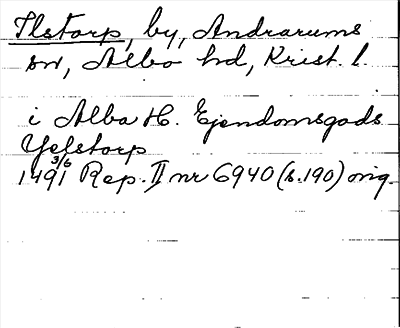 Ilstorp, by, Andrarums
sn, Albo hd, Krist. l.
i Albo H. Ejendomsgods
Yelstorp
1491 3/6 Rep. II nr 6940 (s. 190) orig.